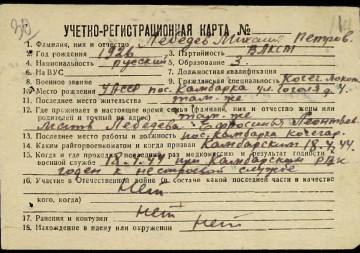 УЧЕТНО-РЕГИСТРАЦИОННАЯ КАРТА №
1. Фамилия, имя и отчество Лебедев Михаил Петров.
2. Год рождения 1926 3. Партийность ВЛКСМ
4. Национальность русский 5. Образование 3.
6. На ВУС 7. Должностная квалификация
8. Военное звание 9. Гражданская специальность Кочег.
10. Место рождения УАССР пос. Камбарка ул. Гоголя д. 4.
11. Последнее место жительства там-же
12. Где проживает в настоящее время семья: фамилия, имя и отчество жены или
родителей и точный их адрес) там же
Мать Лебедева Ефросинья Леонтьев.
13. Последнее место работы и должность пос. Камбарка кочегар.
14. Каким райгорвоенкоматом и когда призван Камбарским 18.4.44.
15. Когда и где проходил последний раз медкомиссию и результат годности к
военной службе 18-4.44 при Камбарском РВК
годен к нестроевой службе
16. Участие в Отечественной войне (в составе какой последней части и качестве
кого, когда) Нет
17. Ранения и контузии нет
18. Нахождение в плену или окружении Нет